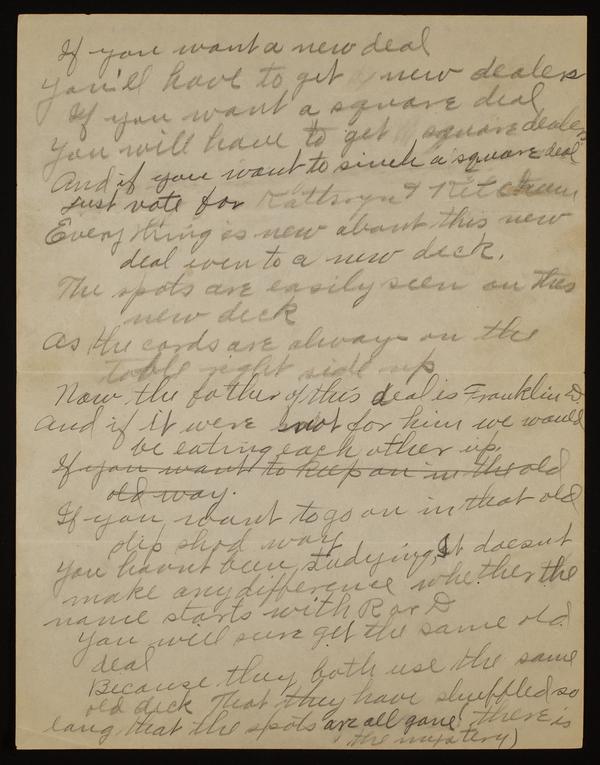 If you want a new deal
You'll have to get new dealers
If you want a square deal
You will have to get square dealers
And if you want to sinch a square deal
Just vote for Kathryn & Ketcham
Everything is new about this new
deal even to a new deck.
The spots are easily seen on this
new deck
As the cards are always on the
table right side up
Now the father of this deal is Franklin D.
And if it were not for him we would
be eating each other up.
If you want to keep on in the old
old way.
If you want to go on in that old
slip shod way
You havnt been studying, It doesnt
make any difference whether the
name starts with R or D
You will sure get the same old
deal
Because they both use the same
old deck That they have shuffled so
long that the spots are all gone! (there is
the mystery)